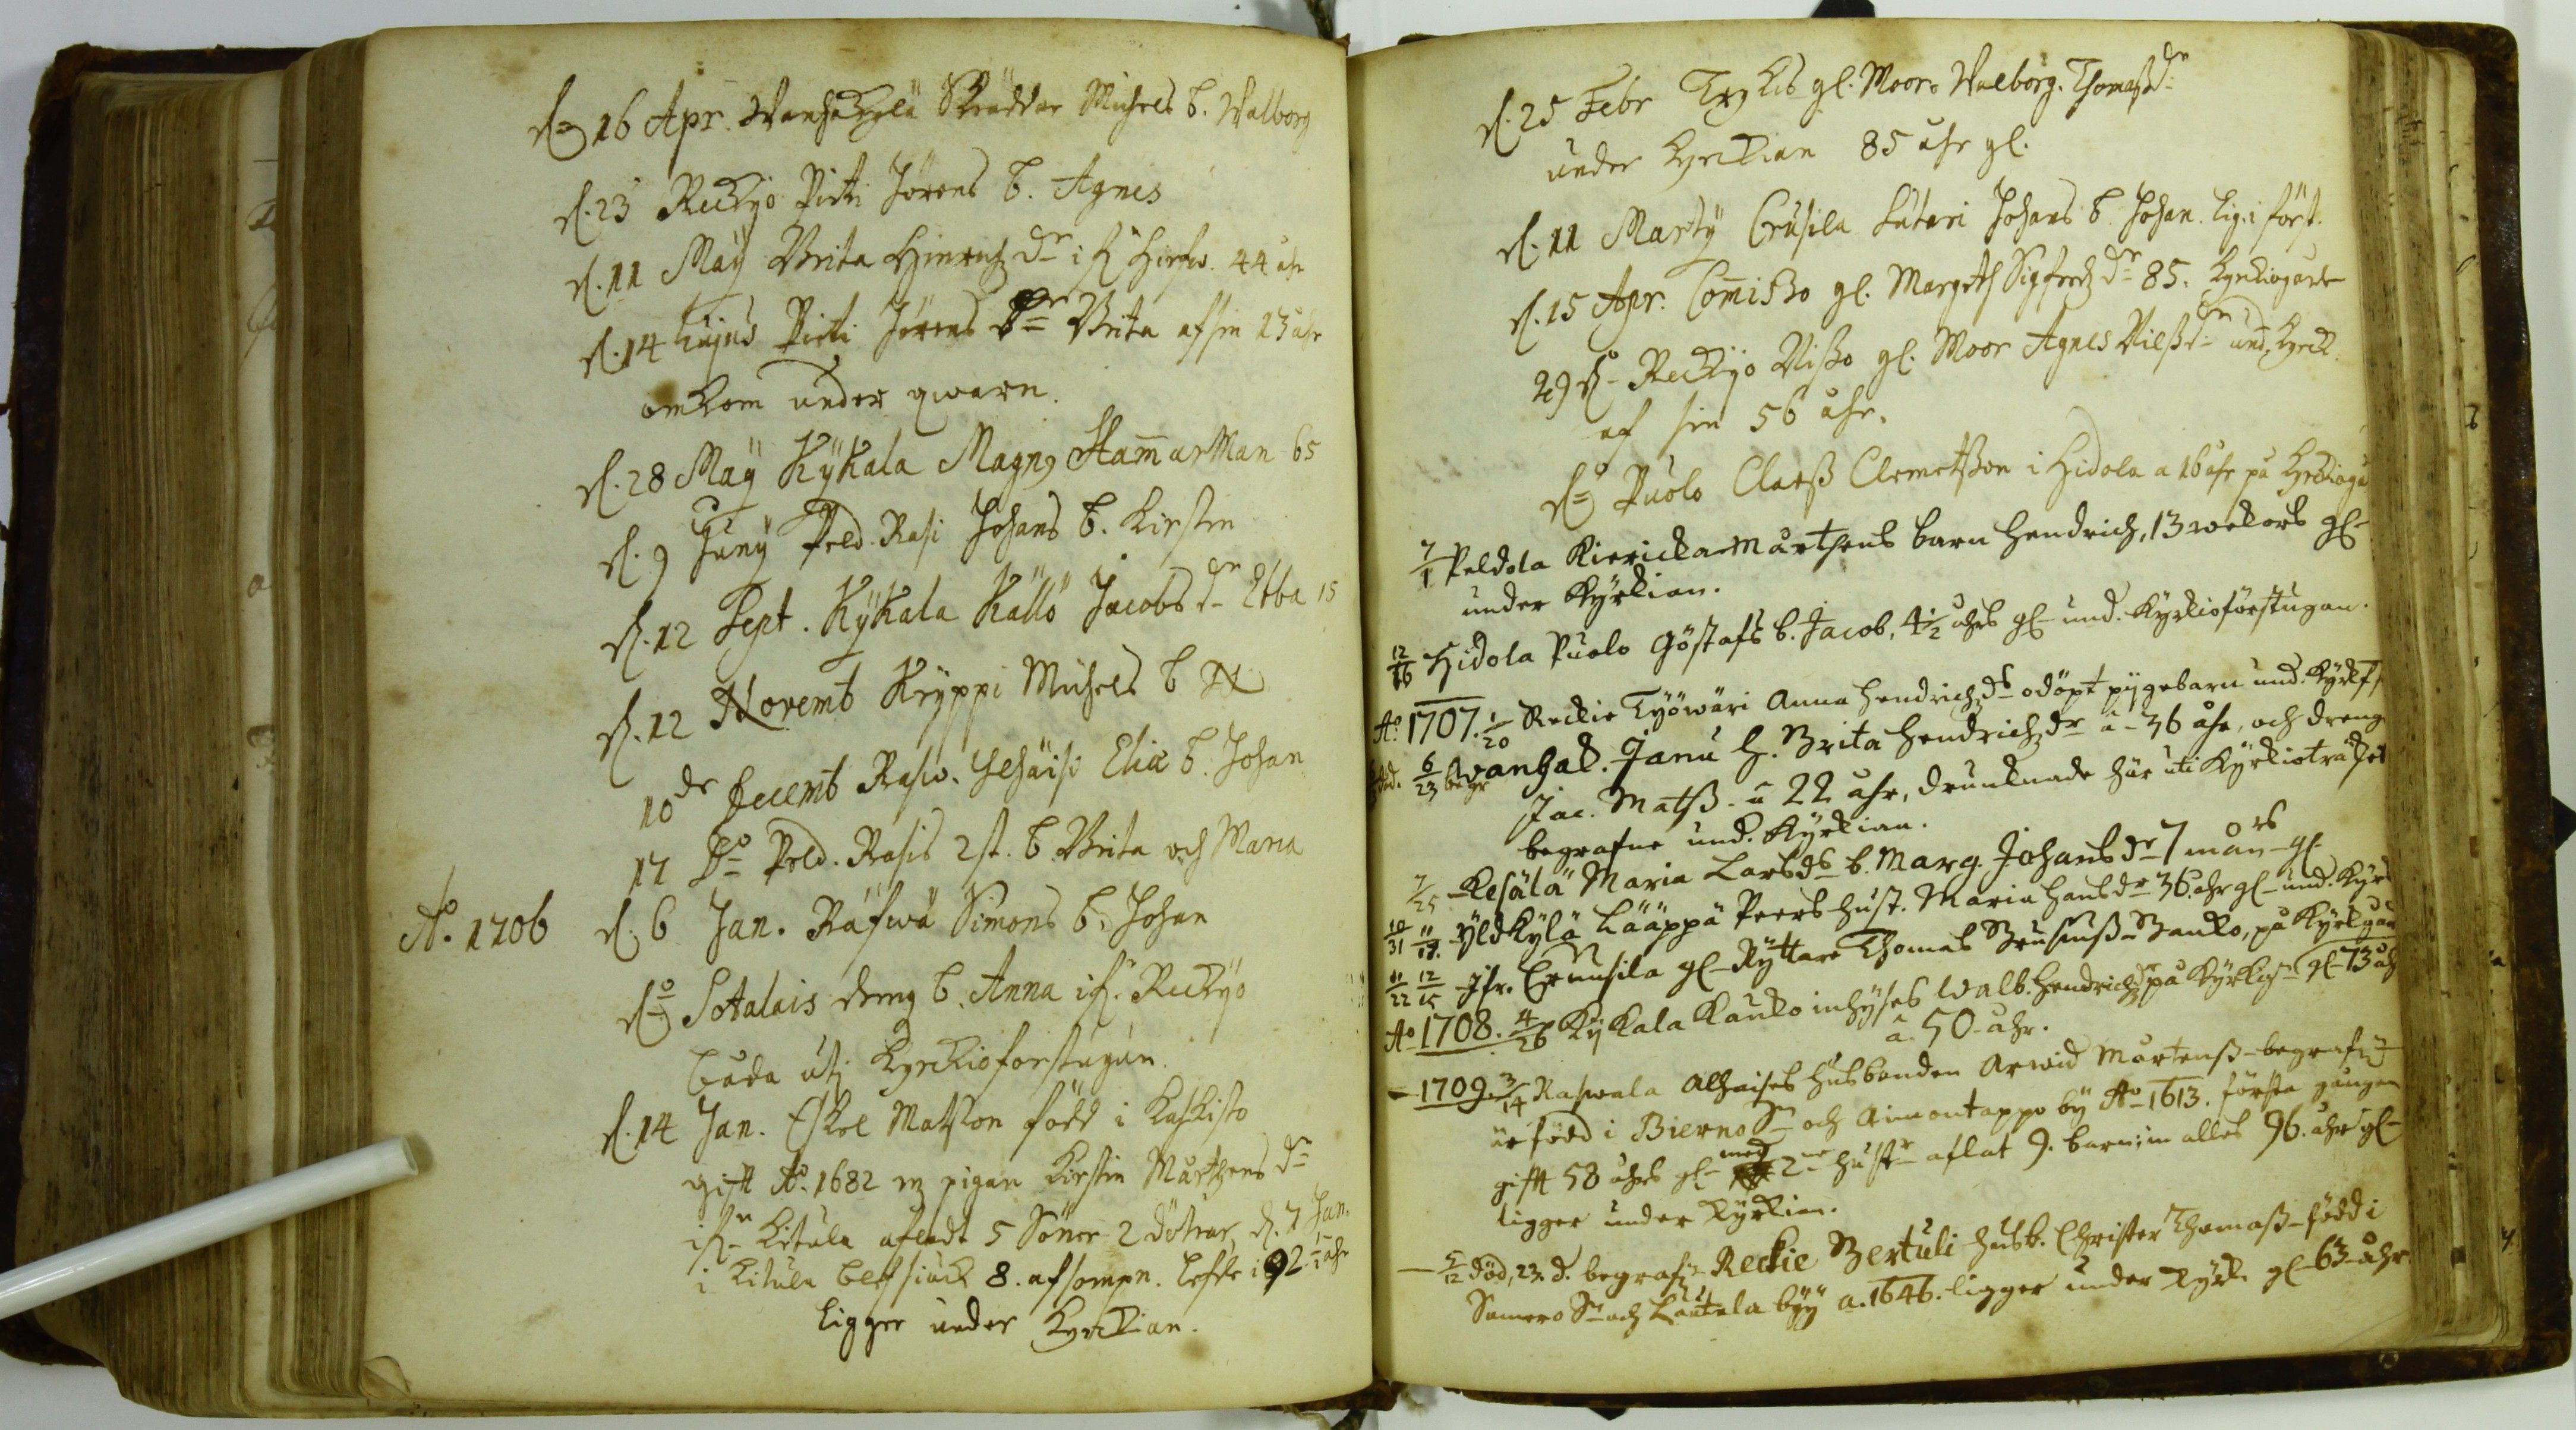 16 Apr. Wanhakylä Skräddar Michels b. Walborg
d. 23 Reckijo Pietti Jörens b. Agnes
d. 11 Maij Brita Hinrichz dr 44 åhr
d. 14 hujus Pietti Jörens dr Brita af sin 13 åhr
omkom under qwarn.
d. 28 Maij Kÿkala Magn9 Ham̄arman 65
d. 9 Junij Peld. Rasi Johans b. Kirstin
d. 12 Sept. Kÿkala Källö Jacobs dr Ebba 15
d. 12 Novemb Kryppi Michels b N
10 de Decemb Rasw. Eliæ b. Johan
17 Do Peld. Rasis 2 st. b. Brita och Maria
Ao. 1706 d. 6 Jan. Räfwä Simons b. Johan
Sotalais dreng b. Anna Reckijo
båda utj Kyrckioforstugun.
d. 14 Jan. Eskel Matzson född i Kaskisto
gifft Ao. 1682 m pigan Kirstin Mårthens dr
Kitula afladt 5 Söner 2 döttrar, d. 7 Jan.
i Kitula blef siuck 8. afsompn. lefde i 92 åhr
ligger under Kyrckian.
d. 25 Febr gl. Moor Walborg. Thomæ dr
under Kyrckian 85 åhr gl.
d. 11 Martij Crusila Lutari Johans b. Johan. lig. i först.
d. 15 Apr. Com̄isso gl. Margeth Sigfredz dr 85. Kyrckiogård
29 Reckijo Nisso gl. Moor Agnes Nielss dr und. Kyrck.
af sin 56 åhr.
Puolo Claess Clemetsson i Hidola a 16 åhr på Kyrckiogå
7/1 Peldola Kiericka Mårthens barn Hendrich, 13 wekors gl
under Kyrkian.
12/16 Hidola Puolo Göstafs b. Jacob, 4 1/2 åhrs gl und. Kyrkioförstugan.
Ao. 1707. 1/20 Reckie Työwäri Anna Hendrichz ds odöpt pygebarn und. Kyrkf
död. 6/23 begr Wanhak. Janu h. Brita Hendrichz dr a 36 åhr, och dreng
Jac. Matss. a 22 åhr, drunknade här uti Kyrkioträsket
begrafne und. Kyrkian.
7/25 Kesälä Maria Lars ds b. Marg. Johans dr 7 mån gl
10/31 Yldkylä Lääppä Peers hust. Maria Hans dr 36 åhr gl und. Kyrk
11/22 12/15 Jfr. Crunsila gl Ryttare Thomas på Kyrkgård
gl 73 åh
Ao 1708. 4/26 Kykala Kauko inhyses Walb. Hendrichz dr på Kyrkg
a. 50 åhr.
1709. 3/14 Raswala Alhaises husbonden Arwid Mårtenss begrafn
är född i Bierno Sn och Aimontappo by Ao 1613. första gången
gifft 58 åhrs gl med 2ne hustr aflat 9. barn; in alles 96. åhr gl
ligger under Kyrkian.
5/12 död, 23 d. begrafn Reckie Bertuli husb. Christer Thomass född i
Somero Sn och Lautela byy a. 1646. ligger under Kyrk. gl 63 åhr